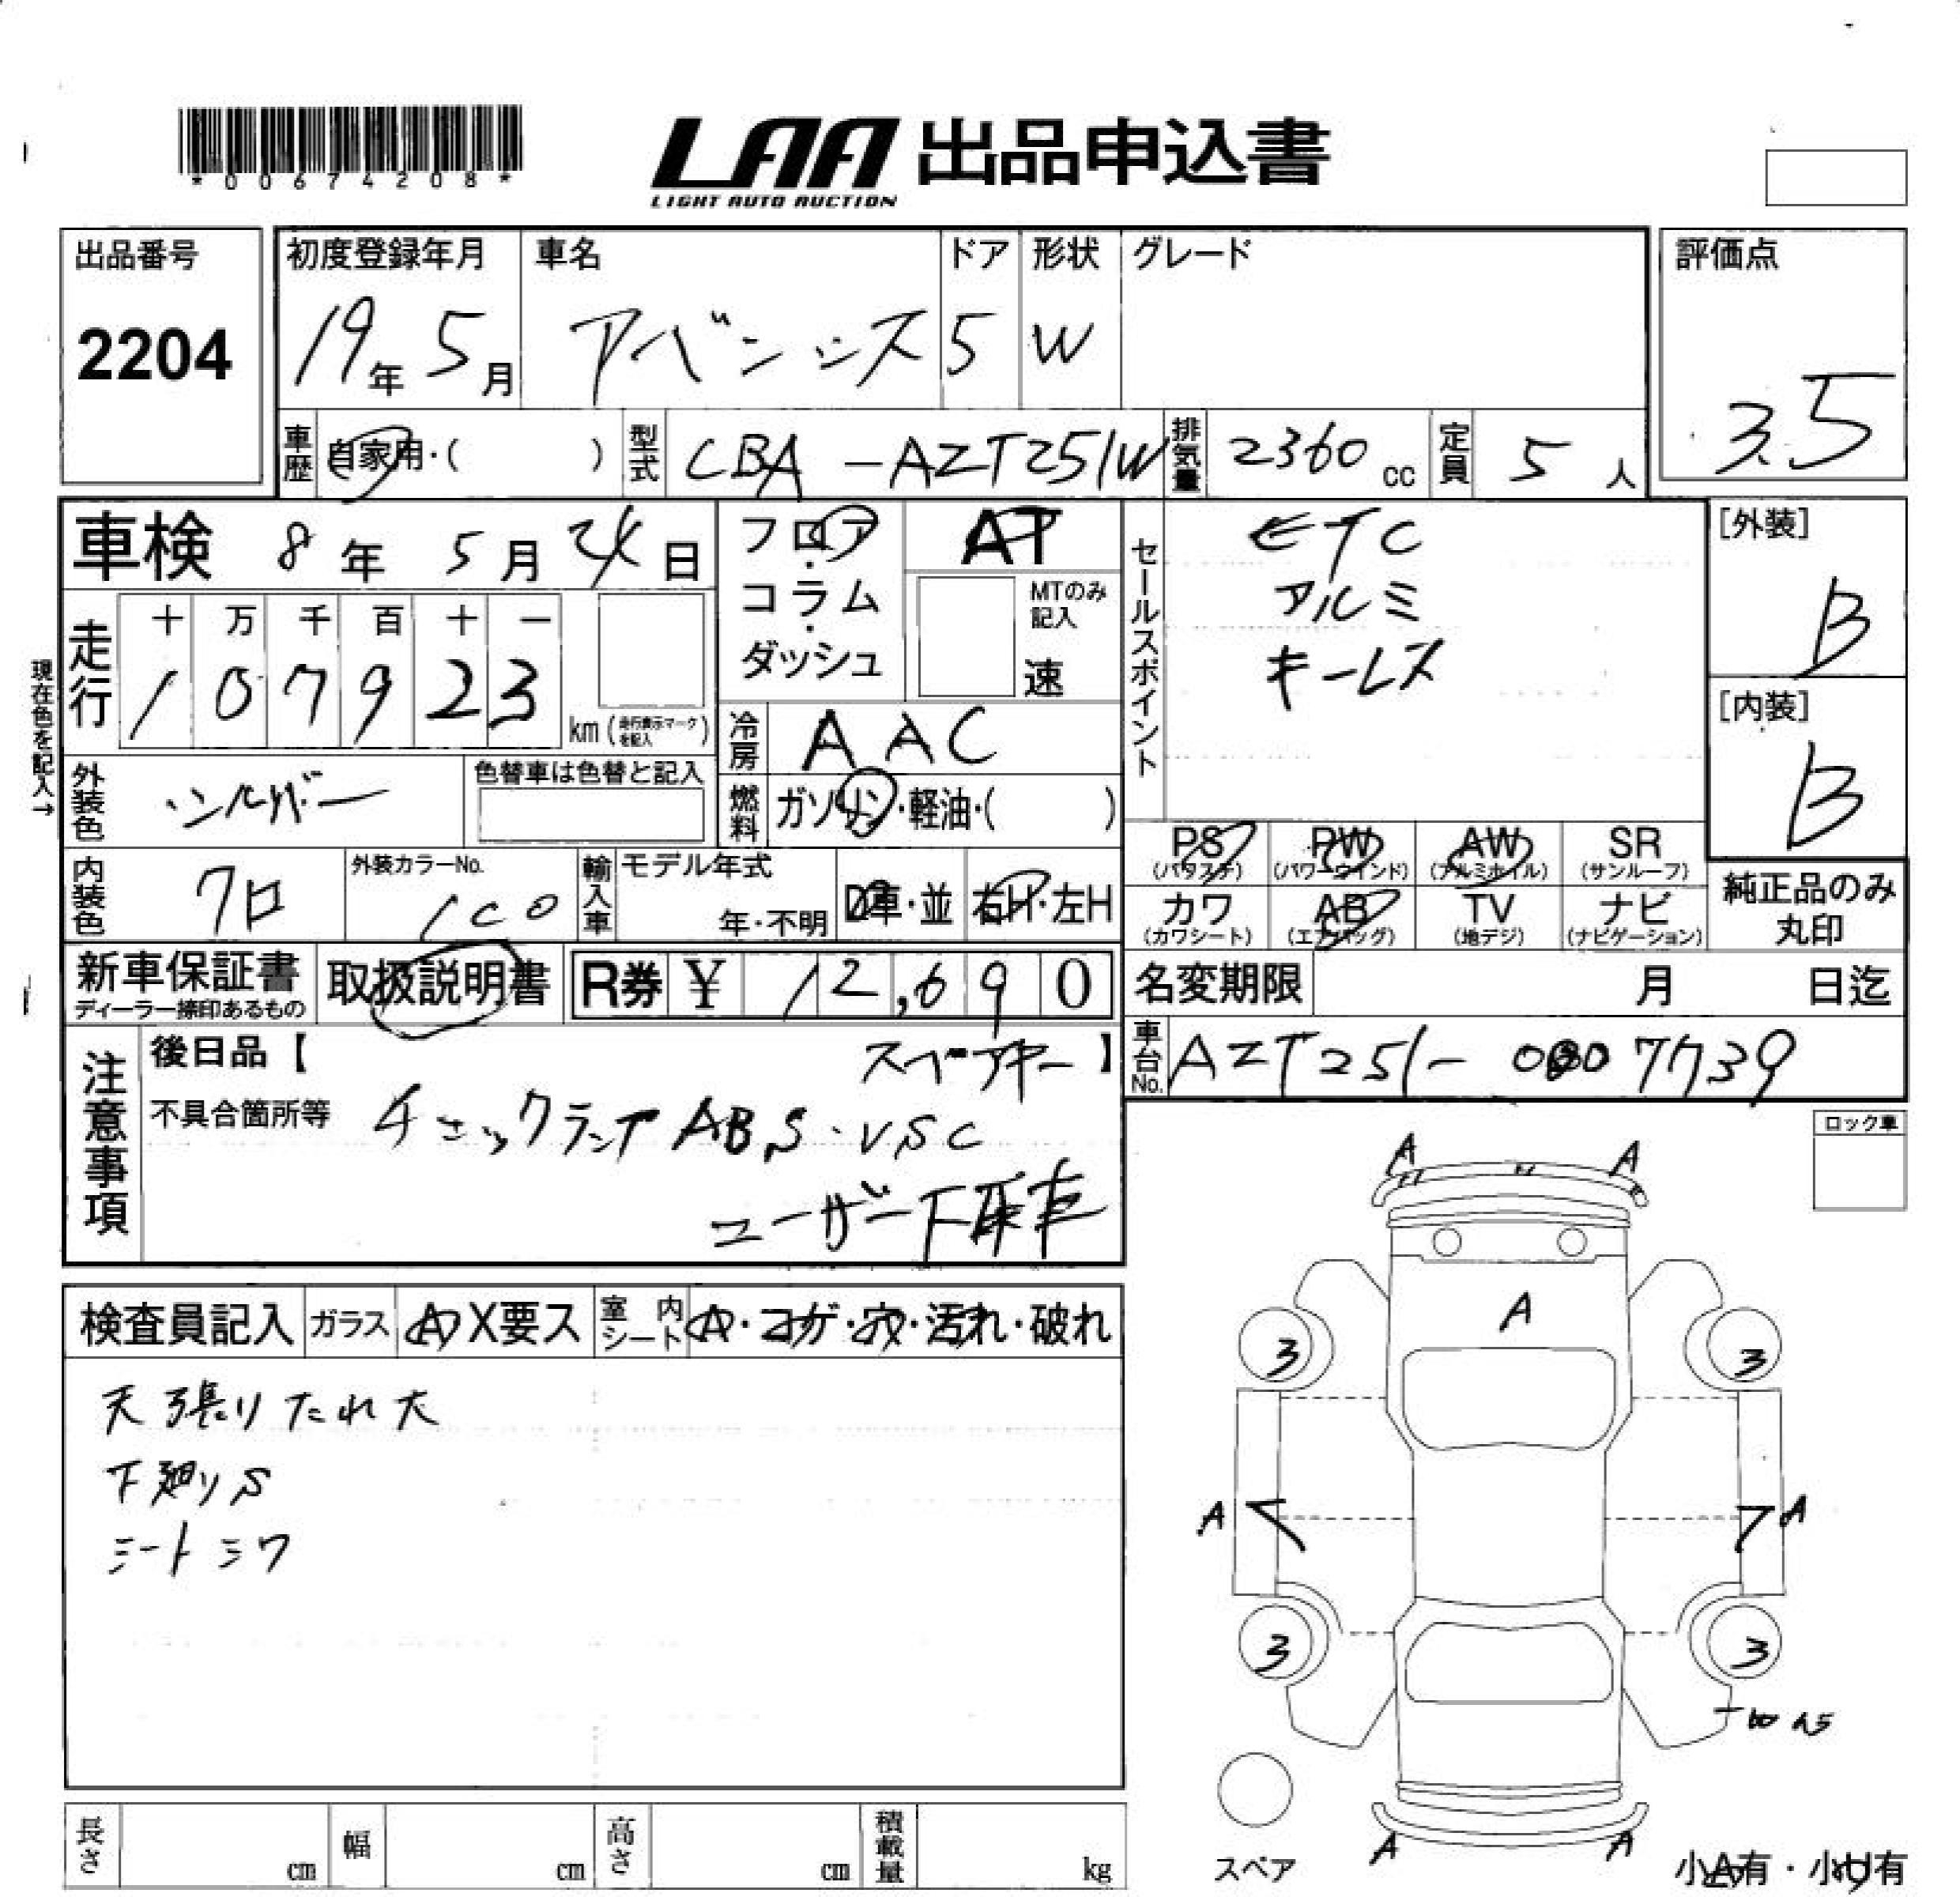 *00674208*
LAA 出品申込書
LIGHT AUTO AUCTION
出品番号 2204
初度登録年月 19年 5月
車名 アベンシス
ドア 5
形状 W
グレード
評価点 3.5
車歴 自家用・( )
型式 CBA-AZT251W
排気量 2360 cc
定員 5 人
車検 8年 5月 24日
フロア・コラム・ダッシュ
AT
MTのみ記入
速
セールスポイント
ETC
アルミ
キーレス
[外装] B
[内装] B
現在色を記入→
走行 十 万 千 百 十 一
1 0 7 9 2 3
km (走行表示マークを記入)
冷房 AAC
外装色 シルバー
色替車は色替と記入
燃料 ガソリン・軽油・( )
内装色 クロ
外装カラーNo. 1C0
輸入車 モデル年式 年・不明
D車・並 右H・左H
PS (パワステ)
PW (パワーウインド)
AW (アルミホイル)
SR (サンルーフ)
カワ (カワシート)
AB (エアバッグ)
TV (地デジ)
ナビ (ナビゲーション)
純正品のみ丸印
新車保証書 ディーラー捺印あるもの
取扱説明書
R券 ¥ 12,690
名変期限 月 日迄
車台No. AZT251-0007739
注意事項
後日品【 スペアキー 】
不具合箇所等 チェックランプ ABS・VSC
ユーザー下取車
ロック車
検査員記入 ガラス A X要ス 室内シート A・コゲ・穴・汚れ・破れ
天張りたれ大
下廻りS
シートシワ
A A
A
3 3
A A
3 3
A A
スペア
小A有・小U有
長さ cm 幅 cm 高さ cm 積載量 kg